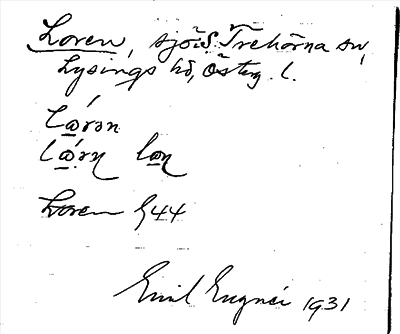 Loren, sjö i S. Trehörna sn,
Lysings hd, Österg. l.
Lɷ́rən
lɷ́rn̥ lɷn̥
Loren G44
Emil Eugnér 1931